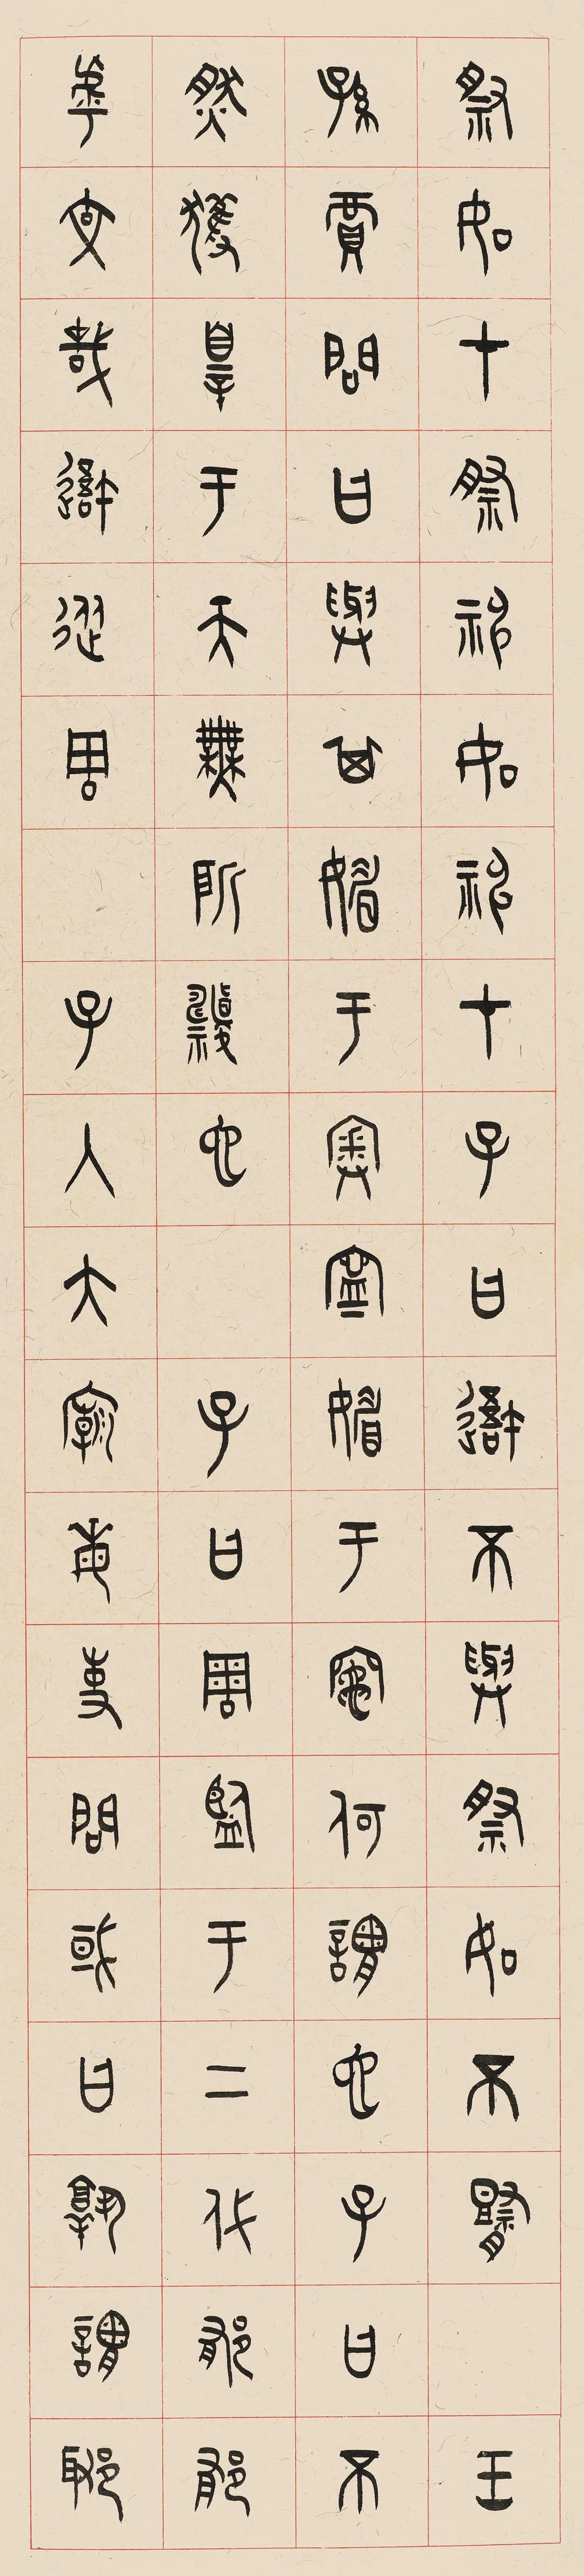 祭如在祭神如神在子曰吾不與祭如不祭 王
孫賈問曰與其媚于奧寧媚于竈何謂也子曰不
然獲辠于天無所禱也 子曰周監于二代郁郁
乎文哉吾從周 子入大廟每事問或曰孰謂鄹